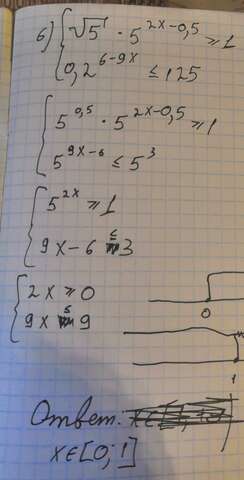 б) { √5 · 5^(2x-0,5) ≥ 1
0,2^(6-9x) ≤ 125
{ 5^(0,5) · 5^(2x-0,5) ≥ 1
5^(9x-6) ≤ 5^3
{ 5^(2x) ≥ 1
9x-6 ≤ 3
{ 2x ≥ 0
9x ≤ 9
0
1
Ответ:
x∈[0; 1]